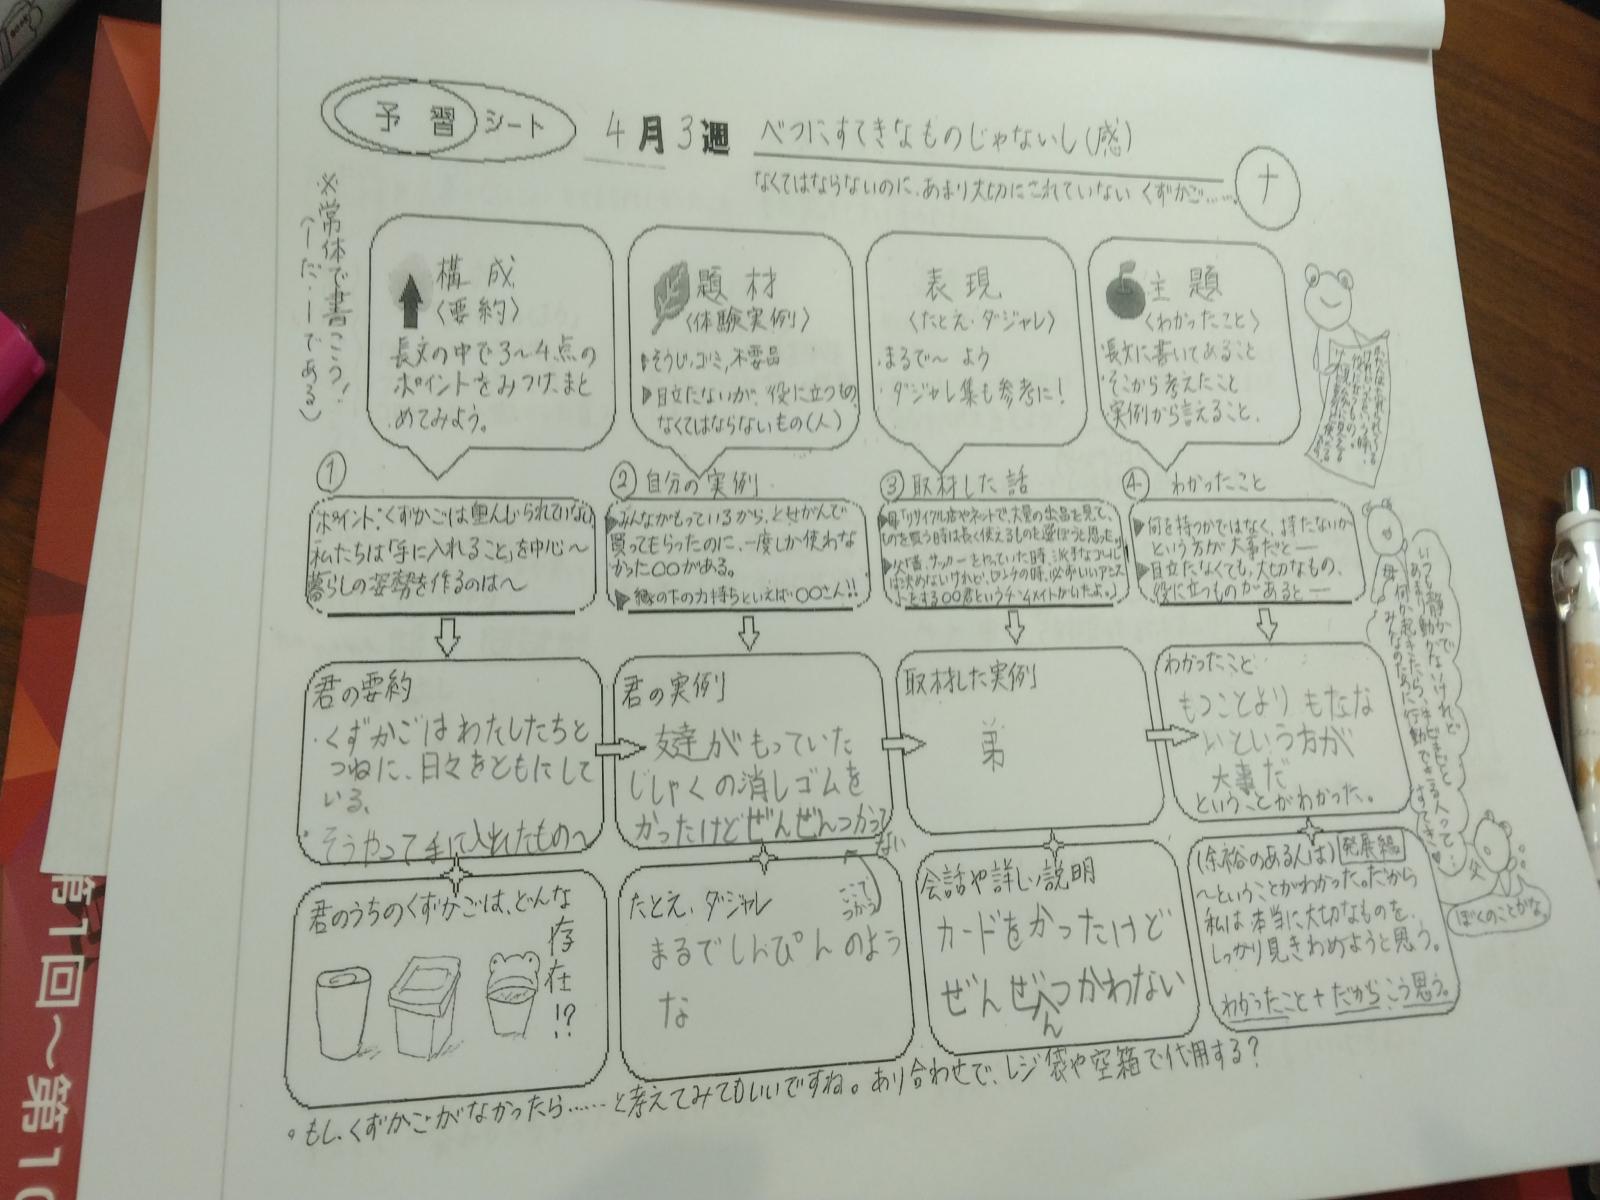 予習シート
4月3週
べつにすてきなものじゃないし(感)
なくてはならないのに、あまり大切にされていないくずかご……。
ナ
※常体で書こう!
(ーだ・ーである)
構成
〈要約〉
長文の中で3〜4点の
ポイントをみつけ、まと
めてみよう。
題材
〈体験実例〉
そうじ、ゴミ、不要品
目立たないが、役に立つもの
なくてはならないもの(人)
表現
〈たとえ・ダジャレ〉
・まるで〜よう
・ダジャレ集も参考に!
主題
〈わかったこと〉
・長文に書いてあること
・そこから考えたこと
・実例から言えること、
①
ポイント:くずかごは重んじられていない
私たちは「手に入れること」を中心〜
暮らしの姿勢を作るのは〜
② 自分の実例
みんながもっているから、とせがんで
買ってもらったのに、一度しか使わな
かった〇〇がある。
縁の下の力持ちといえば〇〇さん!!
③ 取材した話
母「リサイクル店やネットで、大量の出品を見て、
ものを買う時は長く使えるものを選ぼうと思った。」
父「昔、サッカーをやっていた時、派手なゴール
は決めないけれど、ピンチの時、必ずいいアシス
トをする〇〇君というチームメイトがいたよ。」
④ わかったこと
何を持つかではなく、持たないか
という方が大事だとー
目立たなくても、大切なもの、
役に立つものがあるとー
君の要約
・くずかごはわたしたちと
つねに、日々をともにして
いる、
・そうやって手に入れたもの〜
君の実例
友達がもっていた
じしゃくの消しゴムを
かったけどぜんぜんつかって
ない
取材した実例
弟
わかったこと
もつことよりもたな
いという方が
大事だ
ということがわかった。
君のうちのくずかごは、どんな
存在!?
たとえ、ダジャレ
ここで
つかう
まるでしんぴんのよう
な
会話や詳しい説明
カードをかったけど
ぜんぜつかわない
ん
(余裕のある人は) 発展編
〜ということがわかった。だから
私は本当に大切なものを、
しっかり見きわめようと思う。
わかったこと+だからこう思う。
いつも静かで
あまり動かないけれど
何か起きたら、
みんなのために行動できる人って…
すてき♥
母
父
ぼくのことかな
。もし、くずかごがなかったら……と考えてみてもいいですね。あり合わせで、レジ袋や空箱で代用する?
第1回〜第10